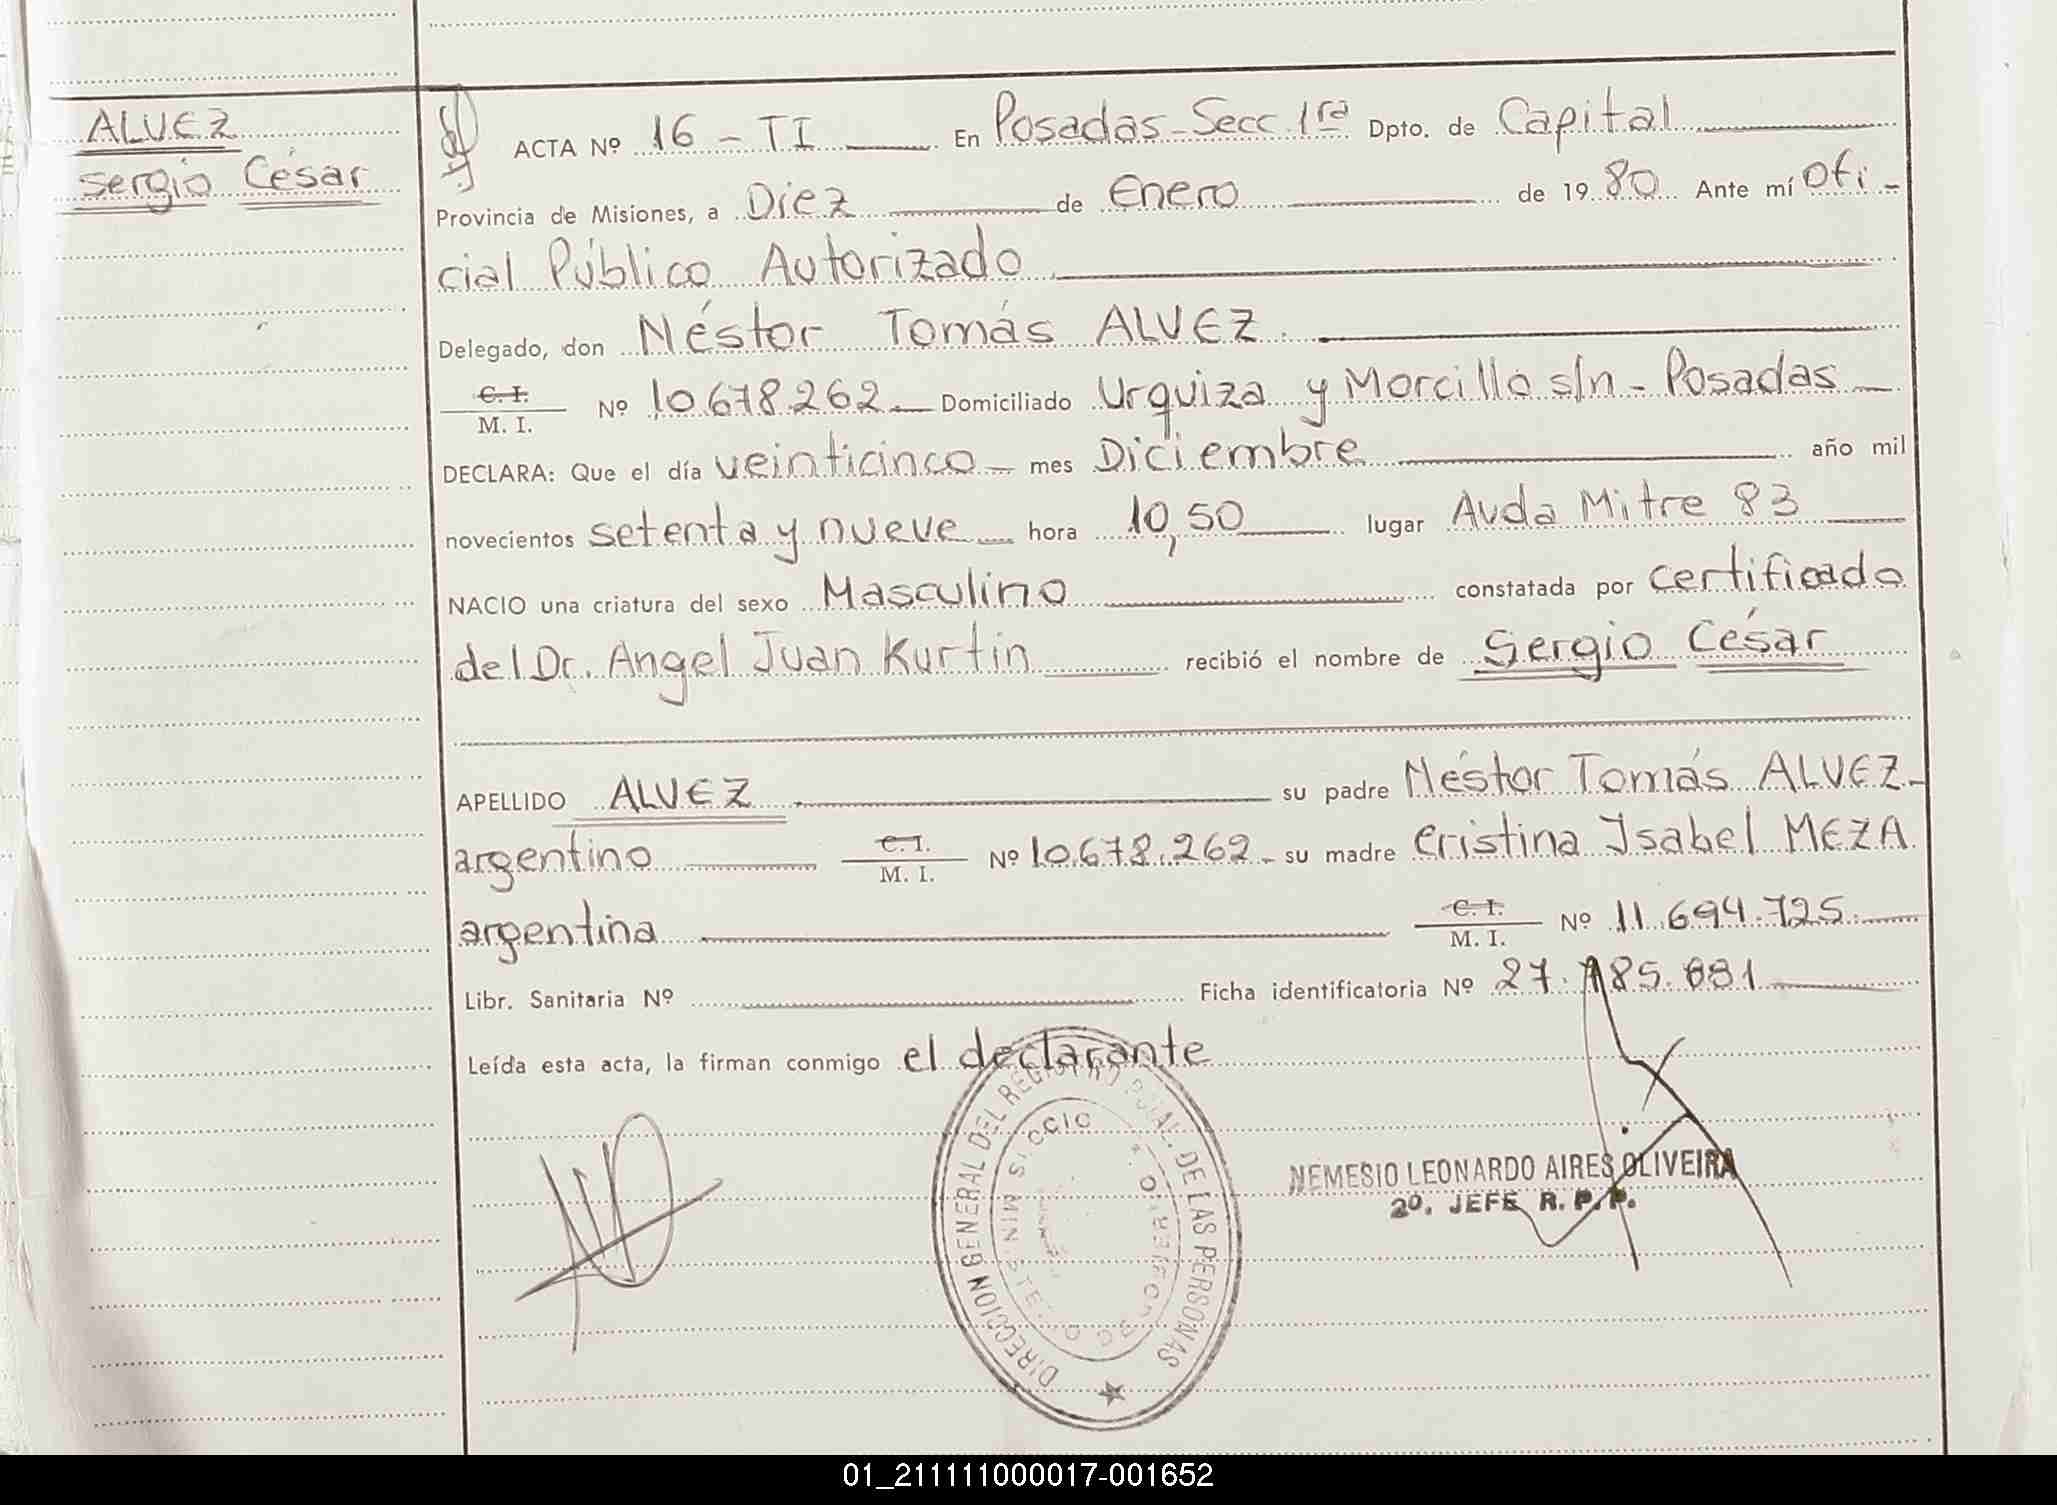 ALVEZ
Sergio César
ACTA Nº 16 - TI En Posadas - Secc. 1ra Dpto. de Capital
Provincia de Misiones, a Diez de Enero de 19 80 Ante mí Ofi-
cial Público Autorizado
Delegado, don Néstor Tomás ALVEZ
C. I.
M. I. Nº 10.678.262 Domiciliado Urquiza y Morcillo s/n - Posadas
DECLARA: Que el día veinticinco mes Diciembre año mil
novecientos setenta y nueve hora 10,50 lugar Avda Mitre 83
NACIO una criatura del sexo Masculino constatada por certificado
del Dr. Angel Juan Kurtin recibió el nombre de Sergio César
APELLIDO ALVEZ su padre Néstor Tomás ALVEZ-
argentino C. I.
M. I. Nº 10.678.262 - su madre Cristina Isabel MEZA
argentina C. I.
M. I. Nº 11.694.725
Libr. Sanitaria Nº Ficha identificatoria Nº 27.185.881
Leída esta acta, la firman conmigo el declarante
DIRECCION GENERAL DEL REGISTRO PCIAL. DE LAS PERSONAS
NEMESIO LEONARDO AIRES OLIVEIRA
2º. JEFE R. P. P.
01_211111000017-001652